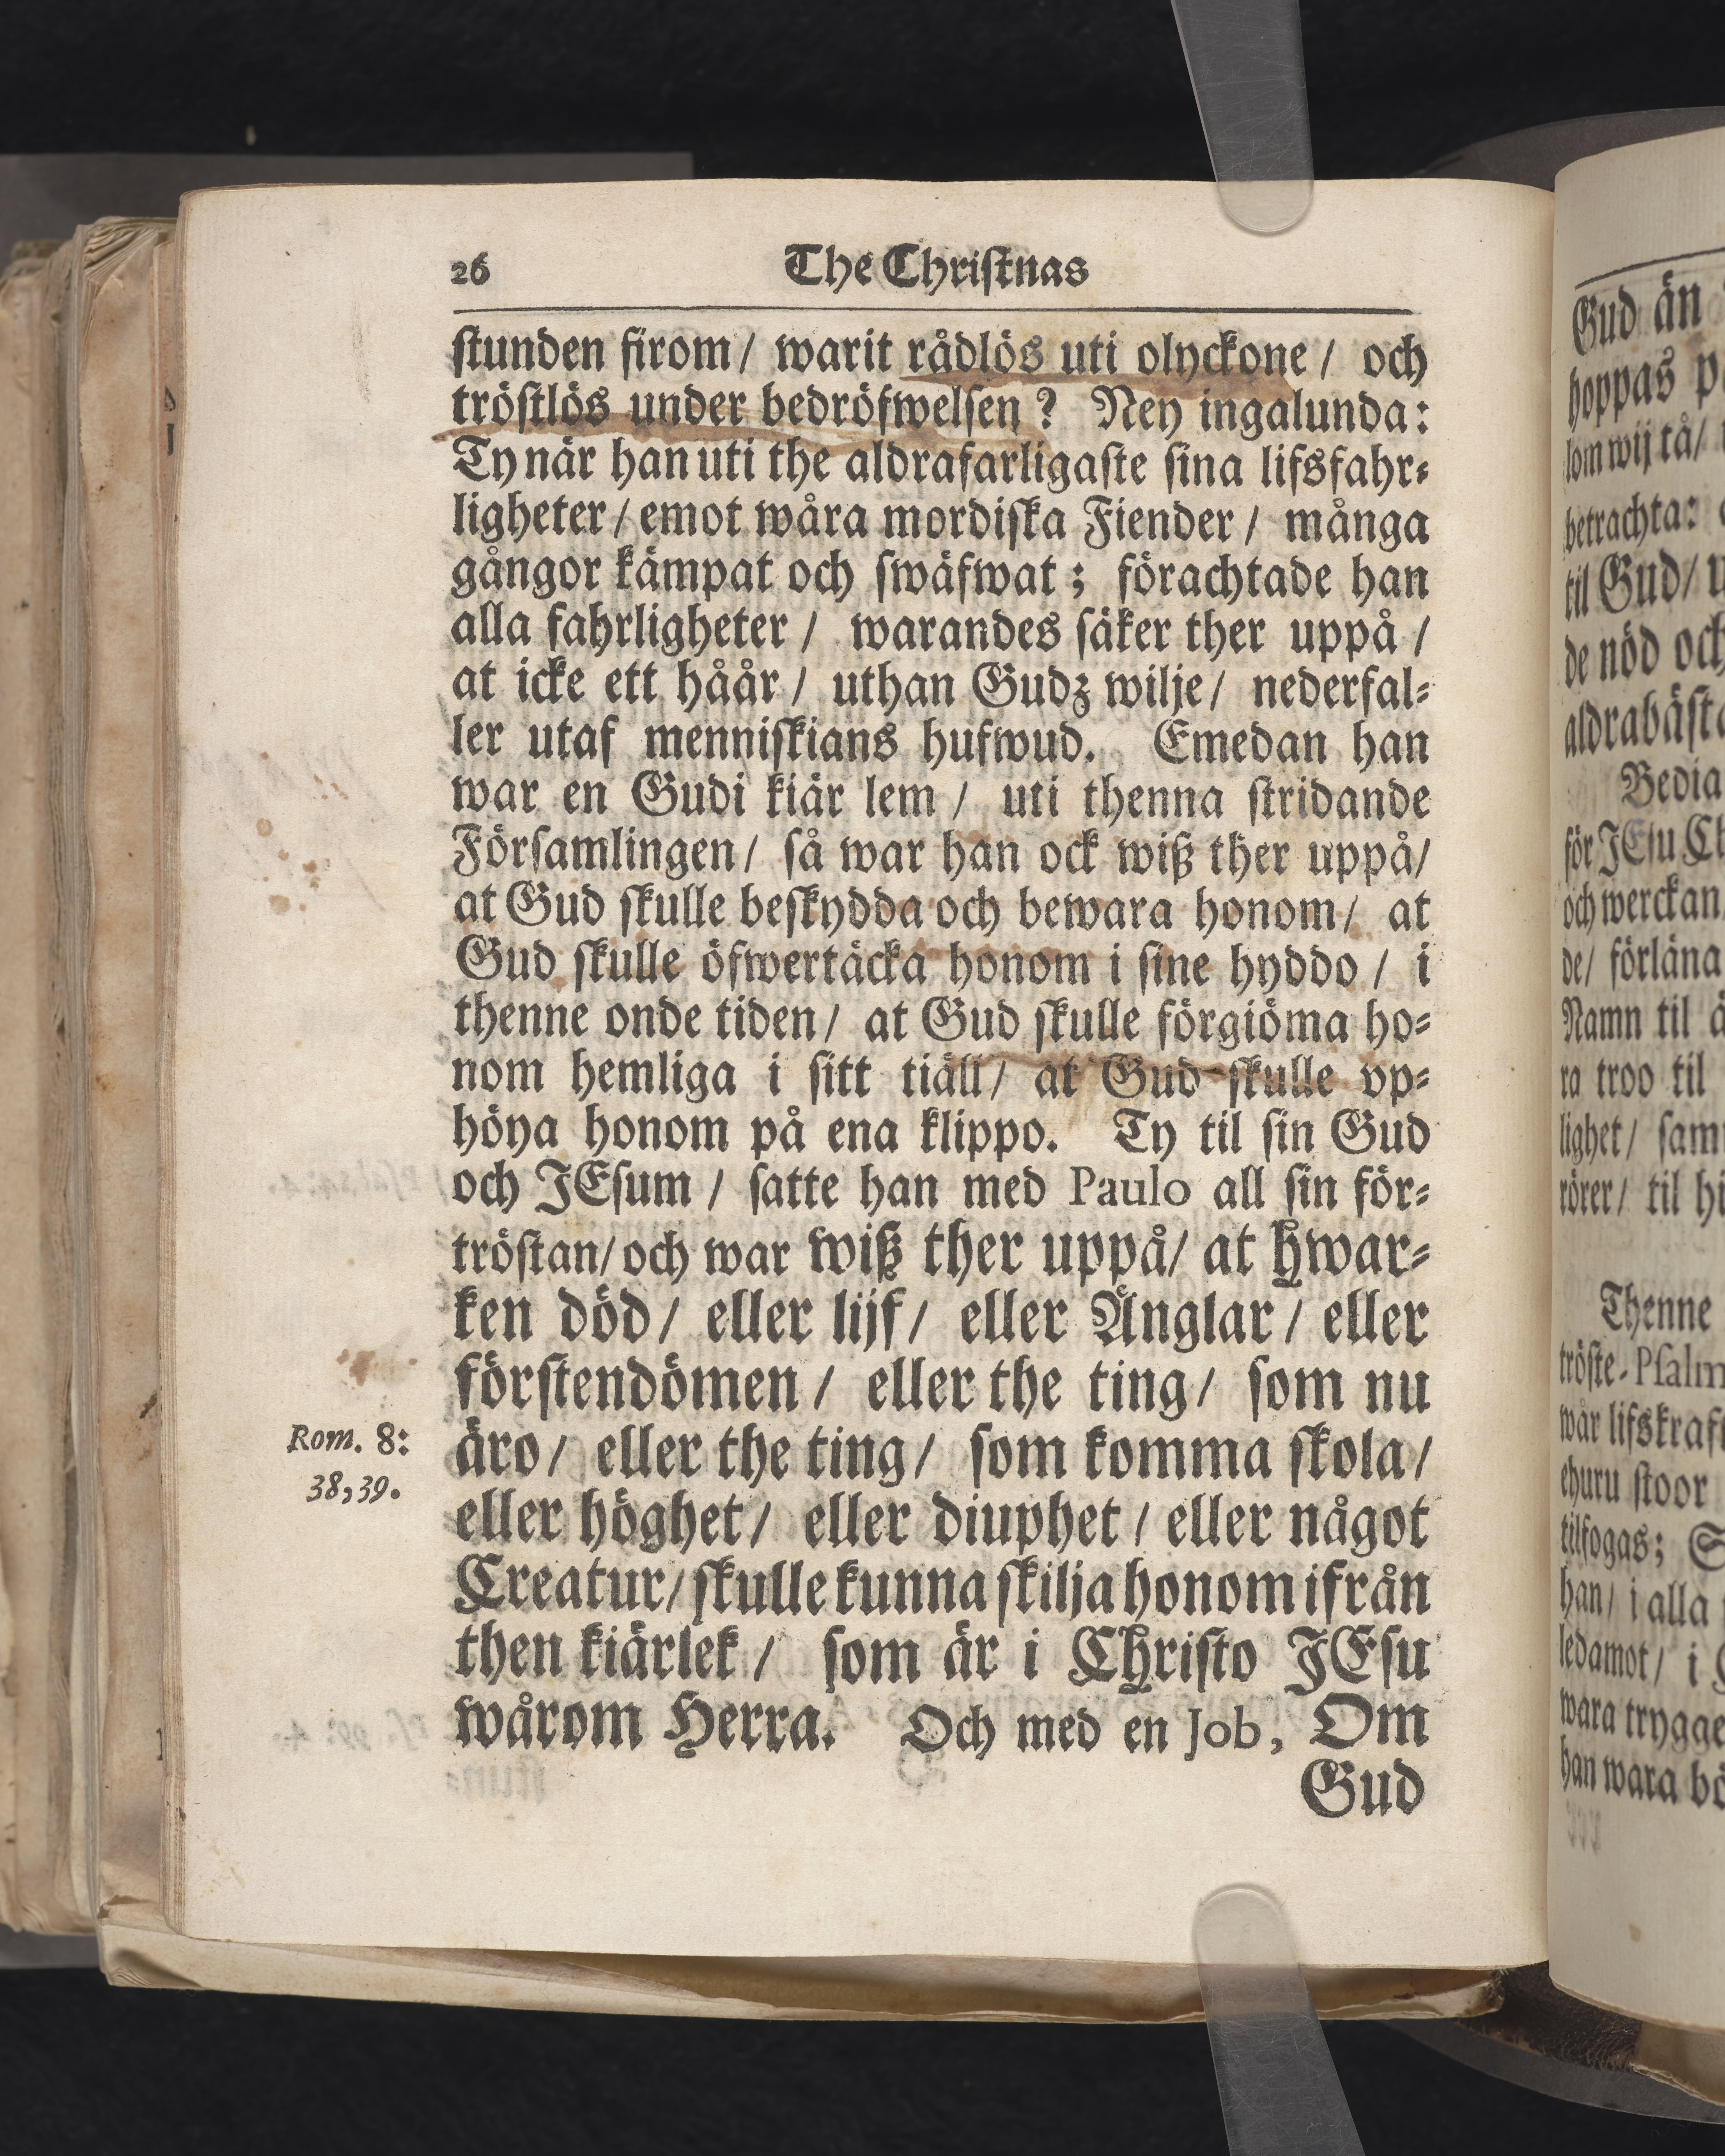 26 The Christnas
stunden sirom/ warit rådlös uti olyckone/ och
tröstlös under bedröfwelsen? Ney ingalunda:
Ty när han uti the aldrafarligaste sina lifsfahr-
ligheter/ emot wåra mordiska Fiender/ många
gångor kämpat och swäfwat; förachtade han
alla fahrligheter/ warandes säker ther uppå/
at icke ett håår/ uthan Gudz wilje/ nederfal-
ler utaf menniskians hufwud. Emedan han
war en Gudi kiär lem/ uti thenna stridande
Församlingen/ så war han ock wiß ther uppå/
at Gud skulle beskydda och bewara honom/ at
Gud skulle öfwertäcka honom i sine hyddo/ i
thenne onde tiden/ at Gud skulle förgiöma ho-
nom hemliga i sitt tiäll/ at Gud skulle vp-
höya honom på ena klippo. Ty til sin Gud
och JEsum/ satte han med Paulo all sin för-
tröstan/ och war wiß ther uppå/ at hwar-
ken död/ eller lijf/ eller Änglar/ eller
förstendömen/ eller the ting/ som nu
äro/ eller the ting/ som komma skola/
Rom. 8:
38, 39.
eller höghet/ eller diuphet/ eller något
Creatur/ skulle kunna skilja honom ifrån
then kiärlek/ som är i Christo JEsu
wårom Herra. Och med en Job, Om
Gud
Gud än
hoppas
som wij tå/
betrachta:
til Gud/
de nöd och
aldrabästa
Bedia
för JEsu
och werckan
de/ förläna
Namn til
ra troo til
lighet/
rörer/ til
Thenne
tröste-Psalm
wår lifskraft
ehuru stoor
tilfogas;
han/ i alla
ledamot/ i
wara trygge
han wara